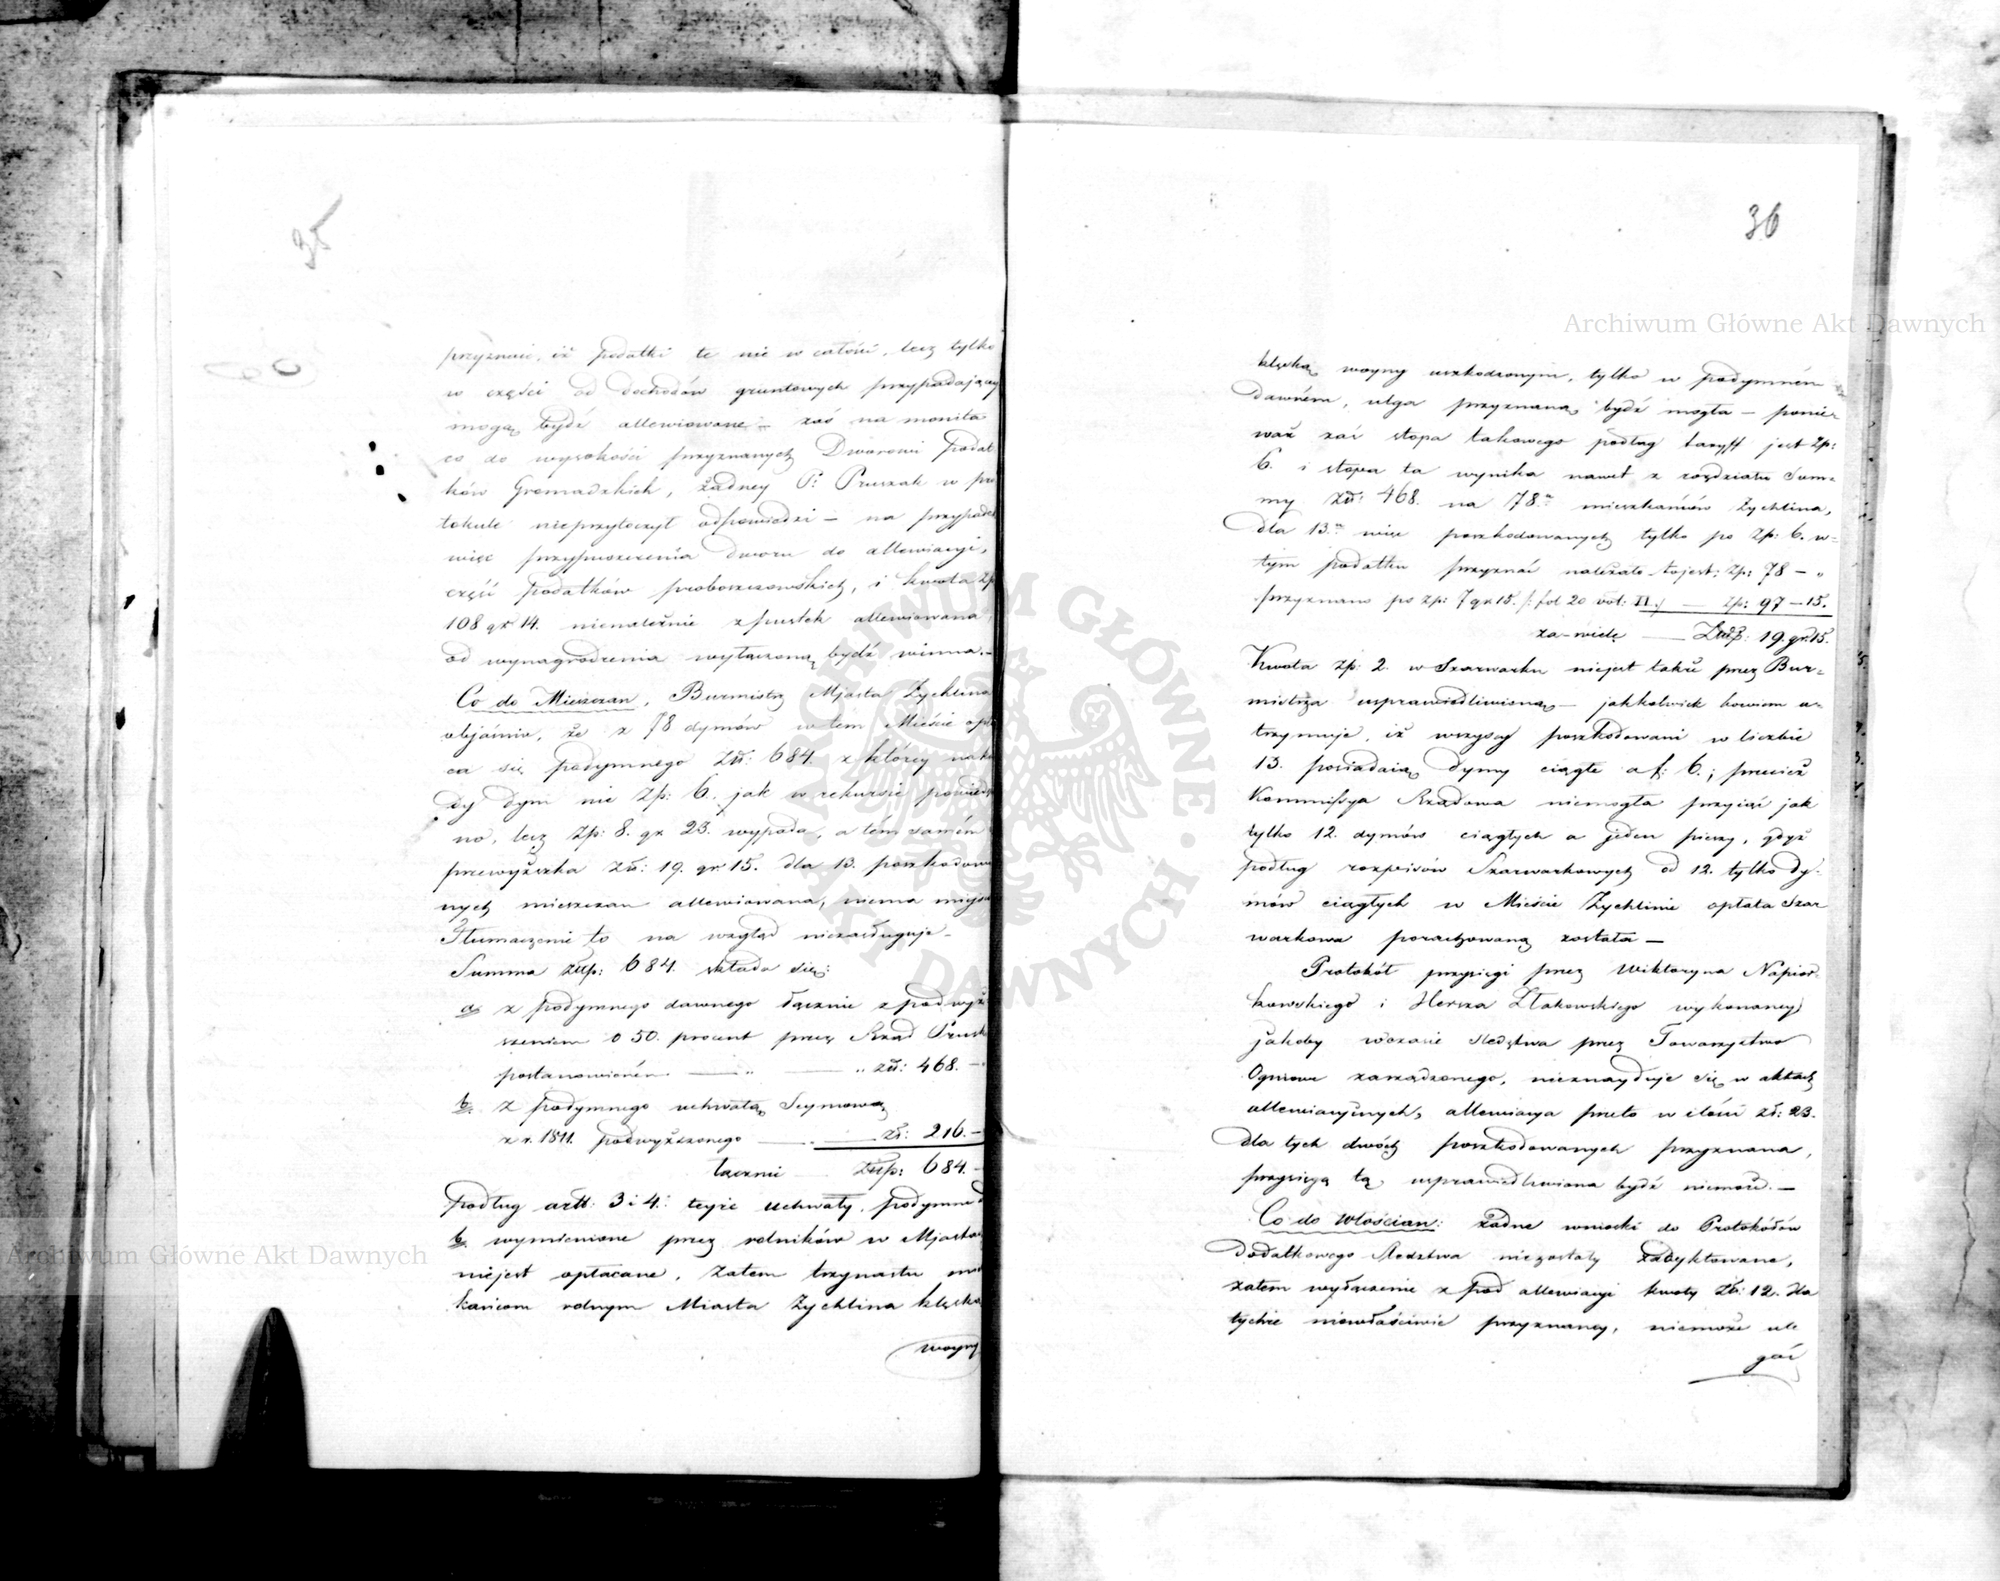 35
przyznać, iż podatki te nie w całości, lecz tylko
w części od dochodów gruntowych przypadający
mogą bydź allewiowane – zaś na monita
co do wysokości przyznanych Dworowi podat
ków Gromadzkich, żadney P: Pruszak w pro
tokule nieprzytoczył odpowiedzi – na przypadek
więc przypuszczenia dworu do allewiacyi,
część podatków proboszczowskich, i kwota zp
108 gr 14. nienależnie z pustek allewiowana
od wynagrodzenia wyłączoną bydź winna. –
Co do Mieszczan, Burmistrz Miasta Żychlina
objaśnia, że z 78 dymów w tem Mieście opła
ca się podymnego Zł: 684. z którey na każ
dy dym nie Zp: 6. jak w rekursie powiedzia
no, lecz Zp: 8. gr 23. wypada, a tém samém
przewyższka Zł: 19. gr. 15. dla 13. poszkodowa
nych mieszczan allewiowana, niema miejsca
Tłumaczenie to na wzgląd niezasługuje –
Summa Złp: 684. składa się:
a. z podymnego dawnego łącznie z podwyż
szeniem o 50. procent przez Rząd Pruski
postanowioném — „ — „ zł: 468. –
b. Z podymnego uchwałą Seymową
z r. 1811. podwyższonego — zł: 216. –
łącznie — Złp: 684. –
podług artt: 3 i 4: teyże uchwały, podymne d
b. wymienione przez rolników w Miastach
niejest opłacane, Zatem trzynastu miesz
kańcom rolnym Miasta Żychlina klęską
woyny
36
klęską woyny uszkodzonym, tylko w podymném
dawném, ulga przyznaną bydź mogła – ponie-
waż zaś stopa takowego podług taryff jest Zp:
6. i stopa ta wynika nawet z rozdziału Sum-
my Zł: 468. na 78u mieszkańców Żychlina,
dla 13u więc poszkodowanych tylko po Zp: 6. w-
tym podatku przyznać należało tojest: Zp: 78 – „
przyznano po Zp: 7 gr 15. /: fol 20 vol: II :/ — Zp: 97 – 15.
za-wiele — Złp: 19. gr. 15.
Kwota Zp: 2. w Szarwarku niejest także przez Bur-
mistrza usprawiedliwioną – jakkolwiek bowiem u-
trzymuje, iż wszyscy poszkodowani w liczbie
13. posiadaią dymy ciągłe a f: 6.; przecież
Kommissya Rządowa niemogła przyiąć jak
tylko 12. dymów ciągłych a jeden pieszy, gdyż
podług rozpisów Szarwarkowych od 12. tylko dy-
mów ciągłych w Mieście Żychlinie opłata Szar
warkowa porachowaną została –
Protokół przysięgi przez Wiktoryna Napior
kowskiego i Hersza Złakowskiego wykonaney
jakoby wczasie śledztwa przez Towarzystwo
Ogniowe zarządzonego, nieznayduje się w aktach
allewiacyinych, allewiacya przeto w ilości zł: 23.
dla tych dwóch poszkodowanych przyznana,
przysięgą tą usprawiedliwiona bydź niemoże. –
Co do Włościan: żadne wnioski do Protokółów
dodatkowego śledztwa niezostały zadyktowane,
zatem wyłączenie z pod allewiacyi kwoty Zł: 12. dla
tychże niewłaściwie przyznaney, niemoże ule
gać
Archiwum Główne Akt Dawnych
Archiwum Główne Akt Dawnych
ARCHIWUM GŁÓWNE AKT DAWNYCH